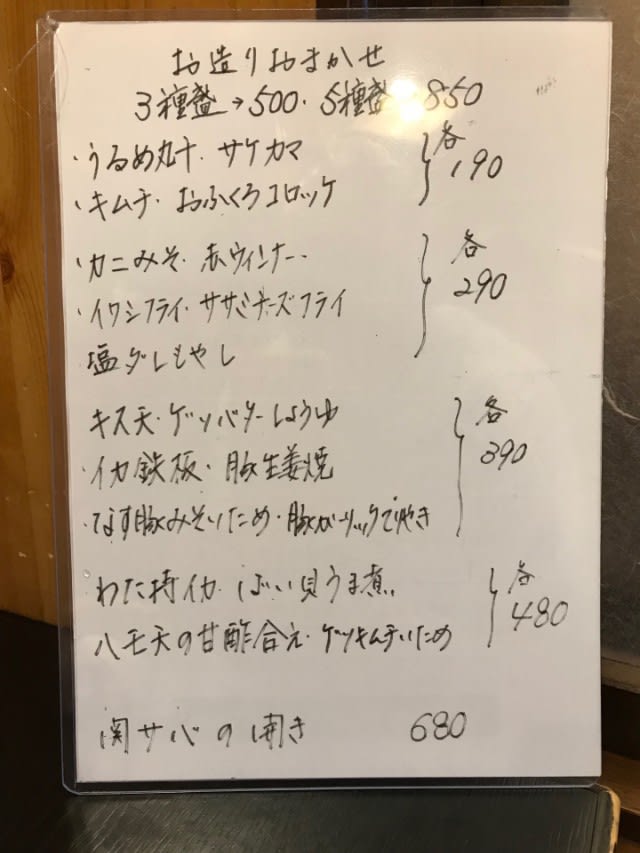 お造りおまかせ
3種盛→500・5種盛 850
・うるめ丸干・サケカマ
・キムチ・おふくろコロッケ
各
190
・カニみそ・赤ウィンナー・
・イワシフライ・ササミチーズフライ
塩ダレもやし
各
290
キス天・ゲソバターしょうゆ
・イカ鉄板・豚生姜焼
・なす豚みそいため・豚ガーリックてりやき
各
390
わた持イカ・ばい貝うま煮
ハモ天の甘酢合え・ゲソキムチいため
各
480
関サバの開き 680